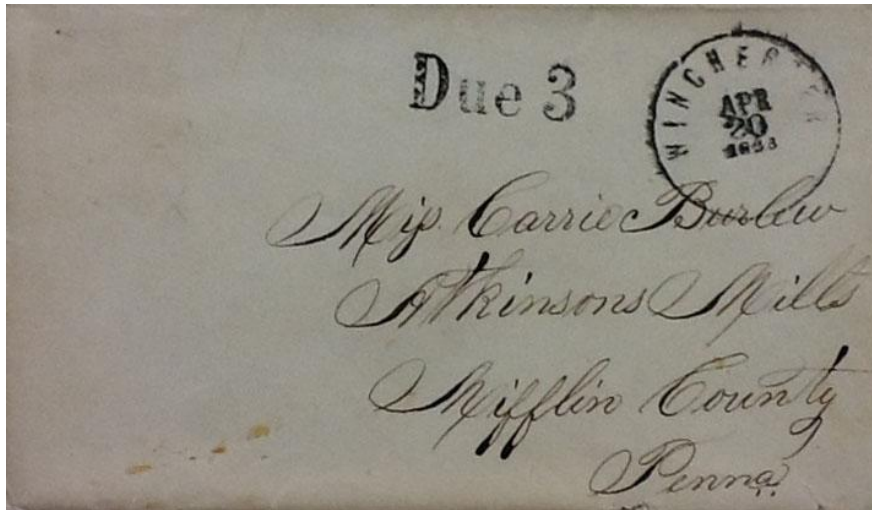 Due 3
WINCHESTER
APR
20
1863
Miss. Carrie Burlew
Atkinsons Mills
Mifflin County
Penna.